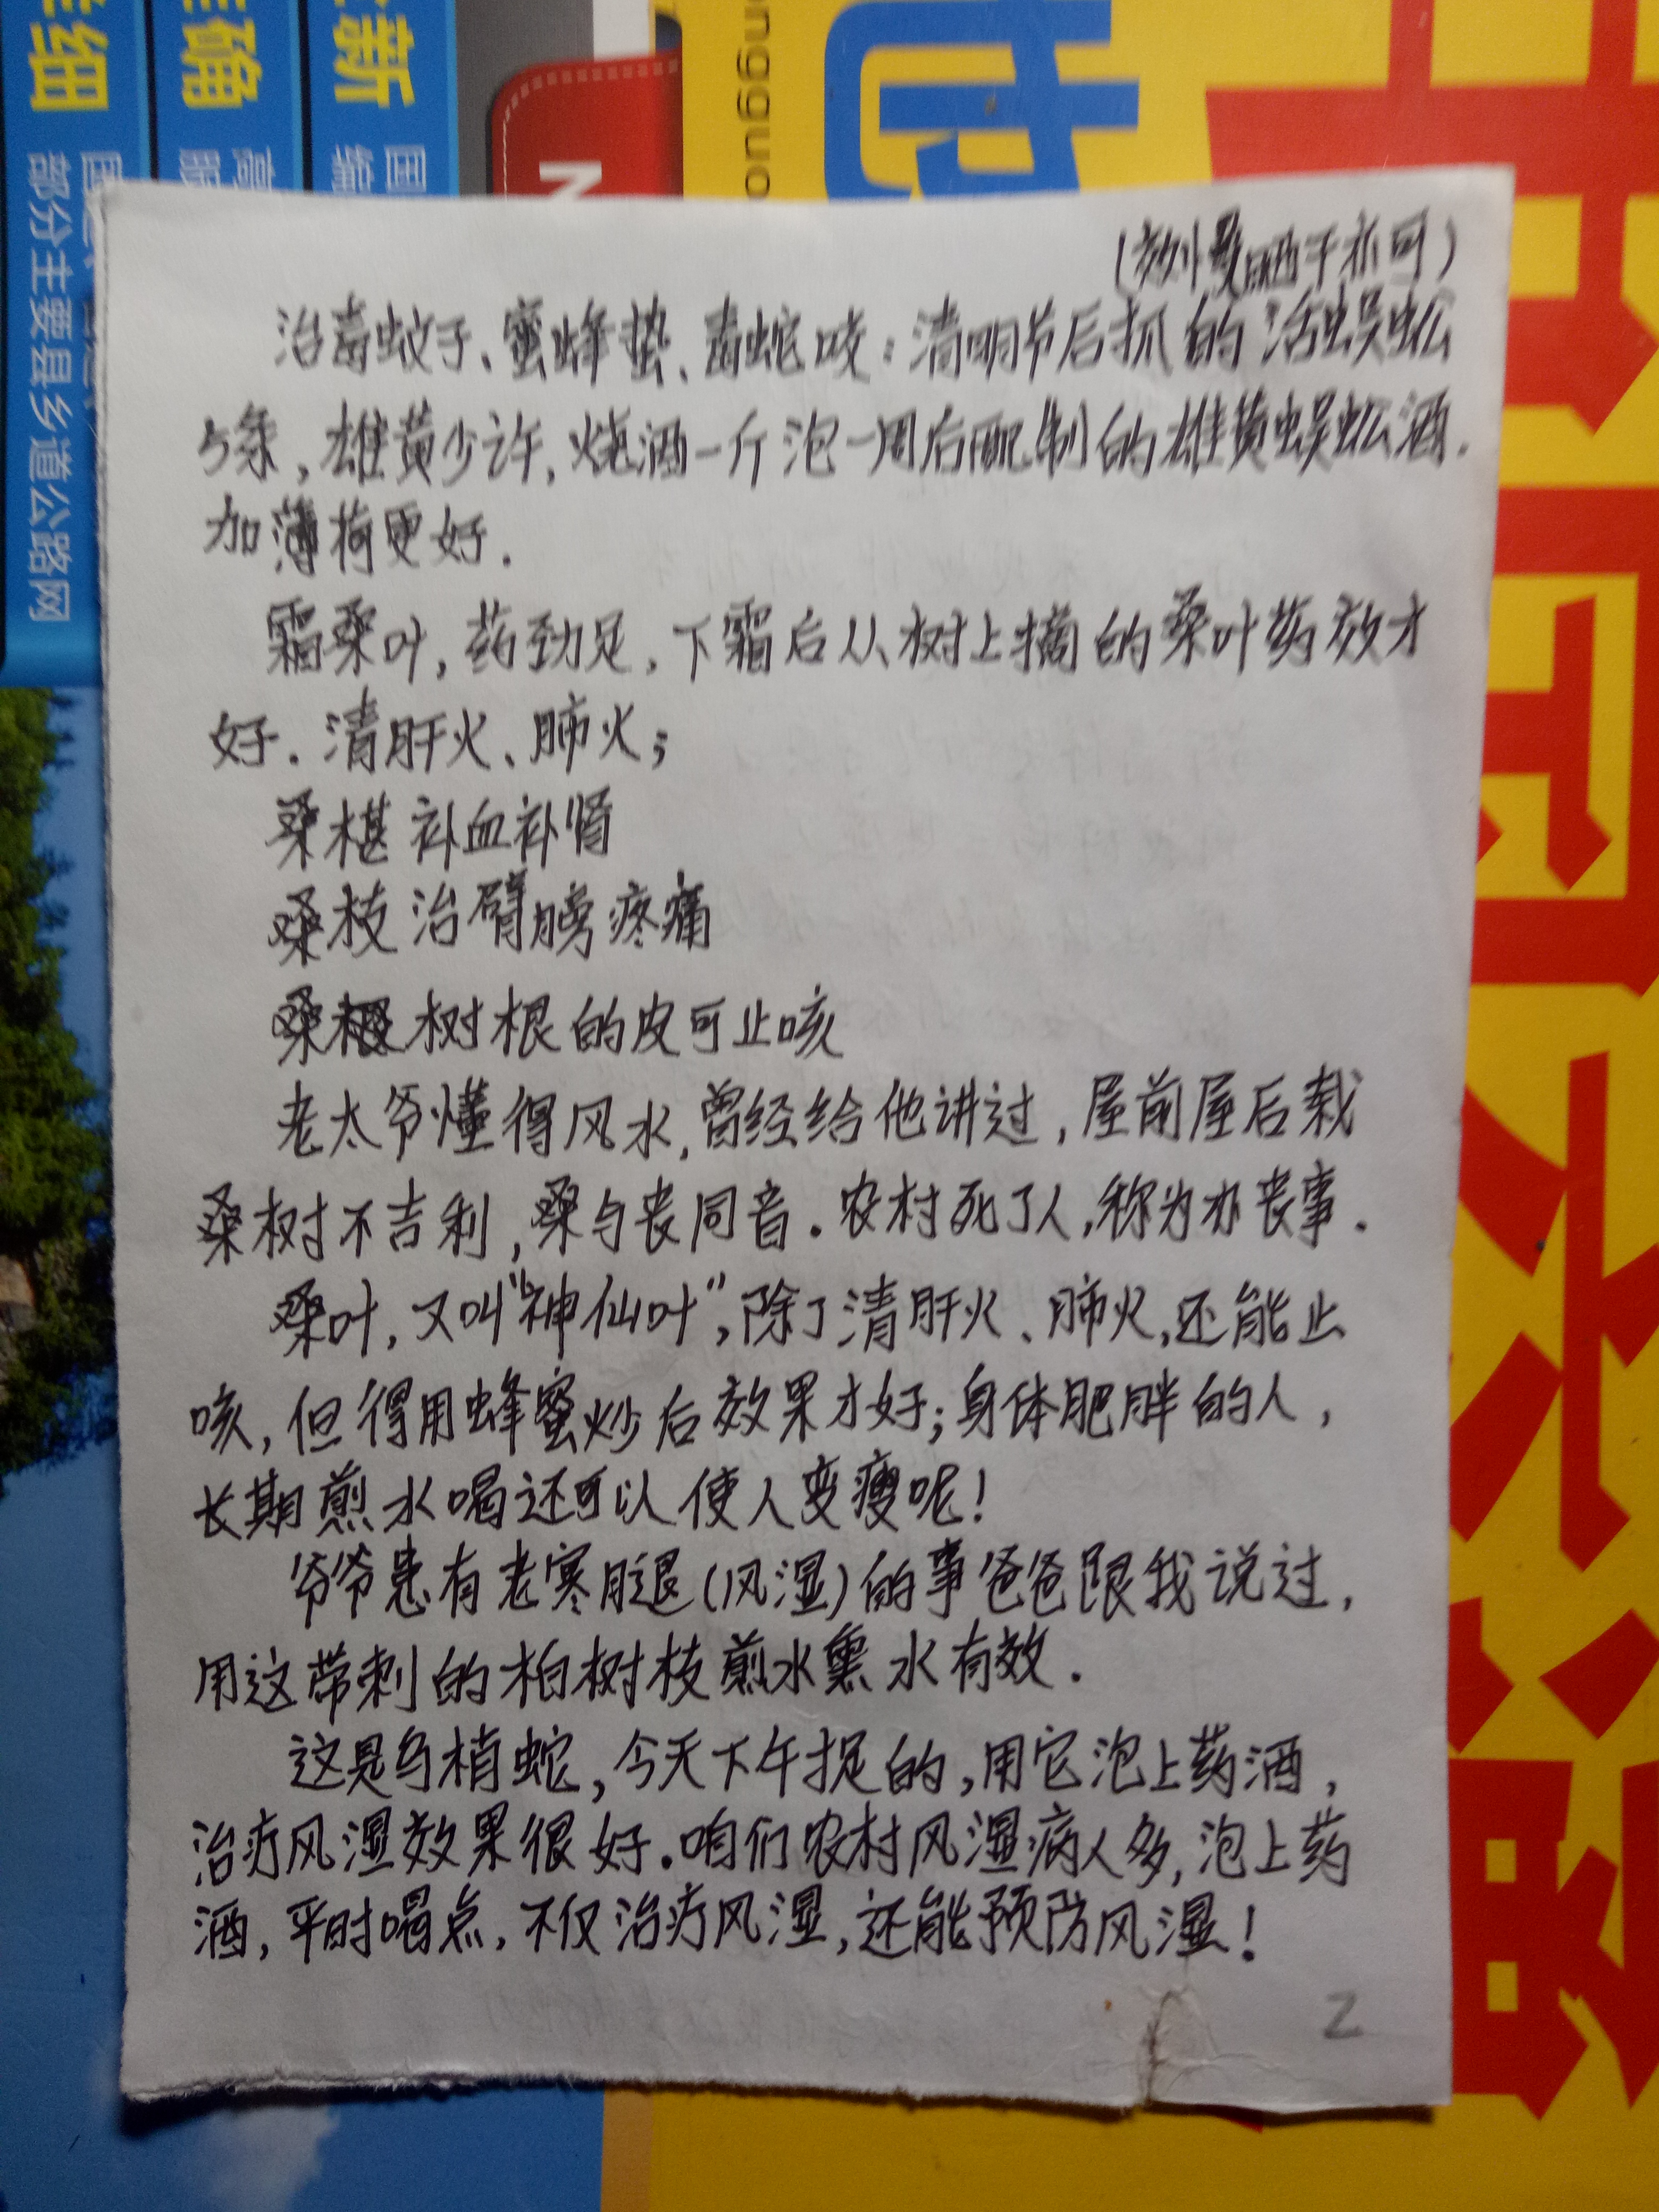 新
国编
准确
高
详细
部分主要县乡道公路网
ongguo
晒干亦可)
治毒蚊子、蜜蜂蛰、毒蛇咬:清明节后抓的活蜈蚣
5条,雄黄少许,烧酒一斤泡一周后配制的雄黄蜈蚣酒.
加薄荷更好.
霜桑叶,药劲足,下霜后从树上摘的桑叶药效才
好.清肝火、肺火;
桑椹补血补肾
桑枝治臂膀疼痛
桑树根的皮可止咳
老太爷懂得风水,曾经给他讲过,屋前屋后栽
桑树不吉利,桑与丧同音.农村死了人,称为办丧事.
桑叶,又叫“神仙叶”,除了清肝火、肺火,还能止
咳,但得用蜂蜜炒后效果才好;身体肥胖的人,
长期煎水喝还可以使人变瘦呢!
爷爷患有老寒腿(风湿)的事爸爸跟我说过,
用这带刺的柏树枝煎水熏水有效.
这是乌梢蛇,今天下午捉的,用它泡上药酒,
治疗风湿效果很好.咱们农村风湿病人多,泡上药
酒,平时喝点,不仅治疗风湿,还能预防风湿!
2